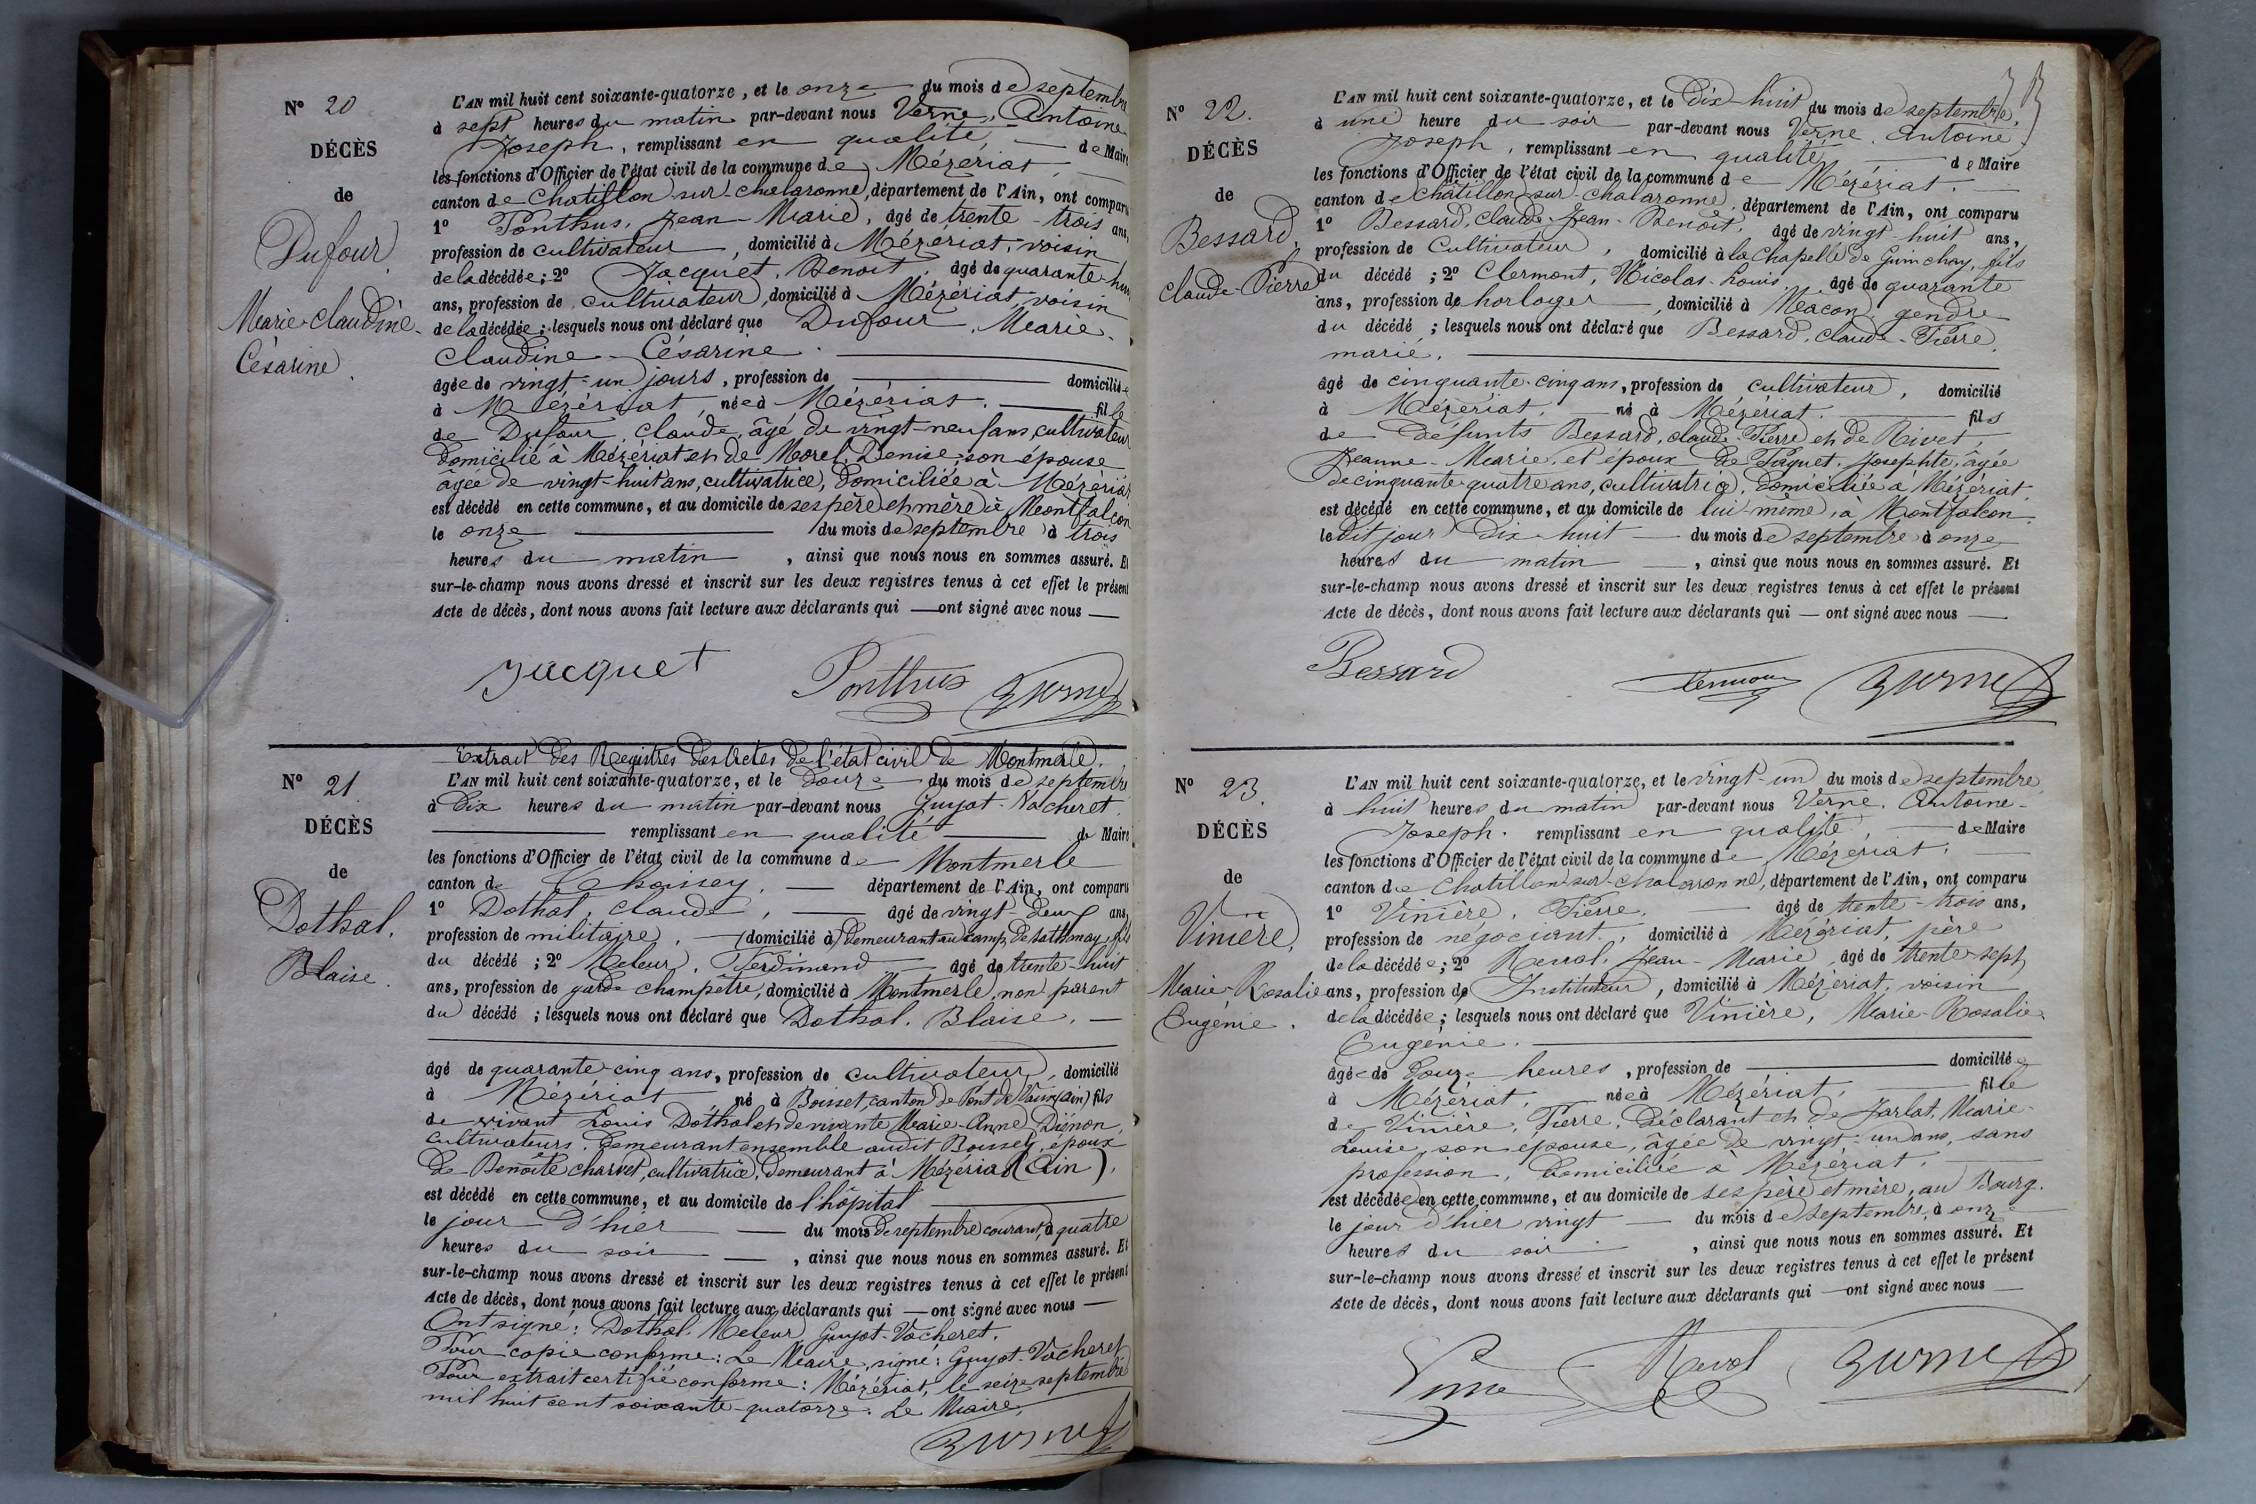 N° 20
DÉCÈS
de
Dufour
Marie-Claudine-
Césarine.
L'AN mil huit cent soixante-quatorze, et le onze du mois de septembre
à sept heures du matin par-devant nous Verne, Antoine
Joseph, remplissant en qualité de Maire
les fonctions d'Officier de l'état civil de la commune de Mézériat,
canton de Chatillon sur chalaronne, département de l'Ain, ont comparu
1° Ponthus, Jean-Marie, âgé de trente-trois ans,
profession de cultivateur, domicilié à Mézériat, voisin
de la décédée; 2° Jacquet, Benoit, âgé de quarante-huit
ans, profession de cultivateur, domicilié à Mézériat, voisin
de la décédée; lesquels nous ont déclaré que Dufour, Marie-
Claudine-Césarine.
âgée de vingt-un jours, profession de domiciliée
à Mézériat, née à Mézériat, fille
de Dufour, Claude, âgé de vingt-neuf ans, cultivateur
domicilié à Mézériat et de Morel, Denise, son épouse
âgée de vingt-huit ans, cultivatrice, domiciliée à Mézériat
est décédé en cette commune, et au domicile de ses père et mère à Montfalcon
le onze du mois de septembre à trois
heures du matin, ainsi que nous nous en sommes assuré. Et
sur-le-champ nous avons dressé et inscrit sur les deux registres tenus à cet effet le présent
Acte de décès, dont nous avons fait lecture aux déclarants qui — ont signé avec nous —
Jacquet Ponthus Verne
N° 21
DÉCÈS
de
Dothal,
Blaise.
Extrait des Registres des Actes de l'état civil de Montmerle.
L'AN mil huit cent soixante-quatorze, et le douze du mois de septembre
à dix heures du matin par-devant nous Guyot-Vacheret
remplissant en qualité de Maire
les fonctions d'Officier de l'état civil de la commune de Montmerle
canton de Thoissey, département de l'Ain, ont comparu
1° Dothal, Claude, âgé de vingt-deux ans,
profession de militaire, (domicilié à) demeurant au camp de Sathonay, fils
du décédé; 2° Meleur, Ferdinand âgé de trente-huit
ans, profession de garde champêtre, domicilié à Montmerle, non parent
du décédé; lesquels nous ont déclaré que Dothal, Blaise. —
âgé de quarante-cinq ans, profession de cultivateur, domicilié
à Mézériat, né à Boisset, canton de Pont de Vaux (Ain) fils
de vivant Louis Dothal et de vivante Marie-Anne
cultivateurs, demeurant ensemble audit Boissey, époux
de Benoite Charvet, cultivatrice, demeurant à Mézériat (Ain).
est décédé en cette commune, et au domicile de l'hôpital
le jour d'hier — du mois de septembre courant, à quatre
heures du soir —, ainsi que nous nous en sommes assuré. Et
sur-le-champ nous avons dressé et inscrit sur les deux registres tenus à cet effet le présent
Acte de décès, dont nous avons fait lecture aux déclarants qui — ont signé avec nous —
Ont signé: Dothal, Meleur, Guyot-Vacheret.
Pour copie conforme: Le Maire, signé: Guyot-Vacheret
Pour extrait certifié conforme: Mézériat, le seize septembre
mil huit cent soixante-quatorze. Le Maire,
Verne
N° 22.
DÉCÈS
de
Bessard,
Claude-Pierre
L'AN mil huit cent soixante-quatorze, et le dix-huit du mois de septembre,
à une heure du soir par-devant nous Verne, Antoine
Joseph, remplissant en qualité de Maire
les fonctions d'Officier de l'état civil de la commune de Mézériat.
canton de Chatillon sur chalaronne, département de l'Ain, ont comparu
1° Bessard, Claude-Jean-Benoit, âgé de vingt-huit ans,
profession de Cultivateur, domicilié à la Chapelle de Guinchay, fils
du décédé; 2° Clermont, Nicolas-Louis, âgé de quarante
ans, profession de horloger, domicilié à Macon, gendre
du décédé; lesquels nous ont déclaré que Bessard, Claude-Pierre,
marié.
âgé de cinquante-cinq ans, profession de cultivateur, domicilié
à Mézériat, né à Mézériat, fils
de défunts Bessard, Claude-Pierre et de Rivet,
Jeanne-Marie, et époux de Paquet, Josephte, âgée
de cinquante-quatre ans, cultivatrice, domiciliée à Mézériat,
est décédé en cette commune, et au domicile de lui-même, à Montfalcon.
le dit jour dix-huit — du mois de septembre à onze
heures du matin —, ainsi que nous nous en sommes assuré. Et
sur-le-champ nous avons dressé et inscrit sur les deux registres tenus à cet effet le présent
Acte de décès, dont nous avons fait lecture aux déclarants qui — ont signé avec nous —
Bessard Clermont Verne
N° 23.
DÉCÈS
de
Vinière,
Marie-Rosalie
Eugénie.
L'AN mil huit cent soixante-quatorze, et le vingt-un du mois de septembre
à huit heures du matin par-devant nous Verne, Antoine-
Joseph. remplissant en qualité, de Maire
les fonctions d'Officier de l'état civil de la commune de Mézériat,
canton de Chatillon sur chalaronne, département de l'Ain, ont comparu
1° Vinière, Pierre, âgé de trente-trois ans,
profession de négociant, domicilié à Mézériat, père
de la décédée; 2° Revol, Jean-Marie, âgé de trente-sept
ans, profession de Instituteur, domicilié à Mézériat, voisin
de la décédée; lesquels nous ont déclaré que Vinière, Marie-Rosalie-
Eugénie.
âgée de douze heures, profession de domiciliée
à Mézériat, née à Mézériat, fille
de Vinière, Pierre, déclarant et de Jarlot, Marie-
Louise, son épouse, âgée de vingt-un ans, sans
profession, domiciliée à Mézériat.
est décédée en cette commune, et au domicile de ses père et mère, au Bourg.
le jour d'hier vingt — du mois de septembre, à onze
heures du soir, ainsi que nous nous en sommes assuré. Et
sur-le-champ nous avons dressé et inscrit sur les deux registres tenus à cet effet le présent
Acte de décès, dont nous avons fait lecture aux déclarants qui — ont signé avec nous —
Revol Verne